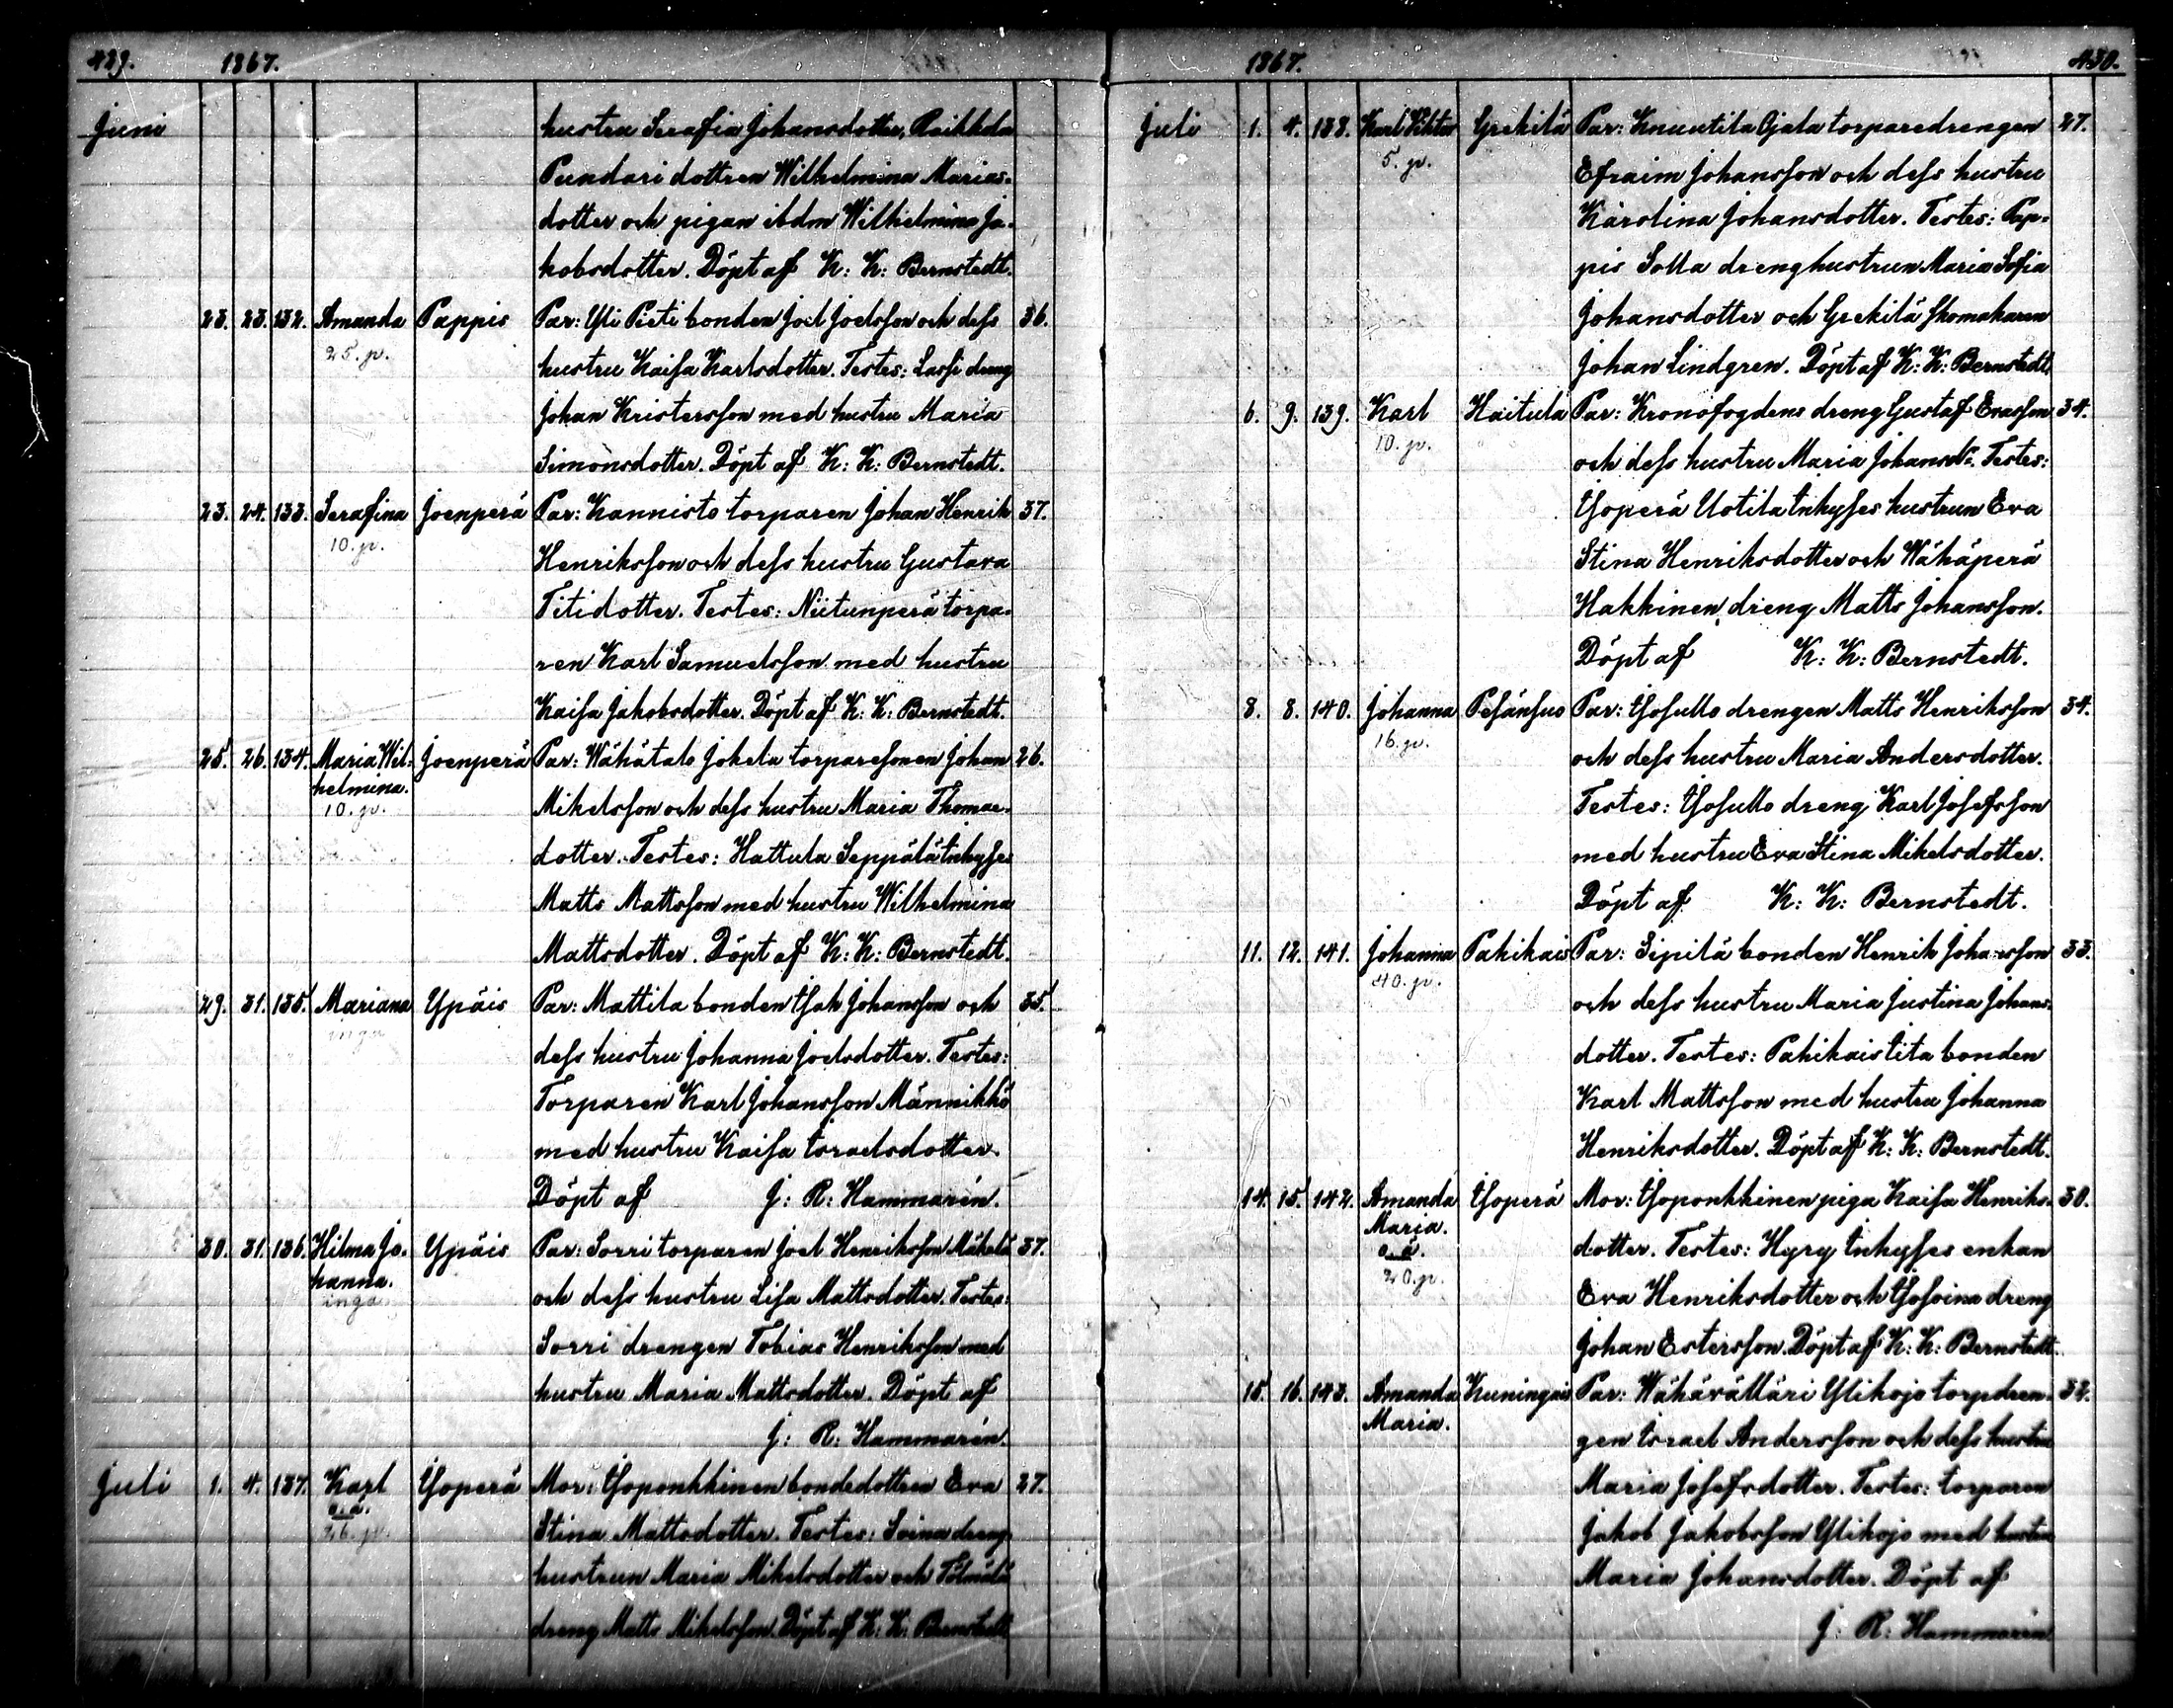 429. 1867.
Juni
hustru Serafia Johansdotter, Raikkola
Pundari dottren Wilhelmina Marias-
dotter och pigan ibdm Wilhelmina Ja-
kobsdotter. Döpt af K: K: Bernstedt.
23. 23. 132. Amanda Pappis Par: Yli Pieti bonden Joel Joelsson och dess 36.
25. p. hustru Kaisa Karlsdotter. Testes: Lassi dreng
Johan Kristersson med hustru Maria
Simonsdotter. Döpt af K: K: Bernstedt.
23. 24. 133. Serafina Joenperä Par: Kannisto torparen Johan Henrik 37.
10. p. Henriksson och dess hustru Gustava
Titidotter. Testes: Niitunperä torpa-
ren Karl Samuelsson med hustru
Kaisa Jakobsdotter. Döpt af K: K: Bernstedt.
25. 26. 134. Maria Wil- Joenperä Par: Wähätalo Jokela torparesonen Johan 26.
helmina. Mikelsson och dess hustru Maria Thomas-
10. p.
dotter. Testes: Hattula Seppälä Inhyses
Matts Mattsson med hustru Wilhelmina
Mattsdotter. Döpt af K: K: Bernstedt.
29. 31. 135. Mariana Ypäis Par: Mattila bonden Isak Johansson och 35.
inga dess hustru Johanna Joelsdotter. Testes:
Torparen Karl Johansson Männikkö
med hustru Kaisa Israelsdotter.
Döpt af J: R: Hammarén.
30. 31. 136. Hilma Jo- Ypäis Par: Sorri torparen Joel Henriksson Mäkelä 37.
hanna. och dess hustru Lisa Mattsdotter. Testes:
inga
Sorri drengen Tobias Henriksson med
hustru Maria Mattsdotter. Döpt af
J: R: Hammarén.
Juli 1. 4. 137. Karl Isoperä Mor: Isoponkkinen bondedottren Eva 27.
o.ä. Stina Mattsdotter. Testes: Soina dreng-
26. p.
hustrun Maria Mikelsdotter och
dreng Matts Mikelsson. Döpt af K: K: Bernstedt
1867. 430.
Juli 1. 4. 138. Karl Viktor Grekilä Par: Knuutila Ojala torparedrengen 27.
5. p. Efraim Johansson och dess hustru
Karolina Johansdotter. Testes: Pap-
pis Solla drenghustrun Maria Sofia
Johansdotter och Grekilä Skomakaren
Johan Lindgren. Döpt af K: K: Bernstedt.
6. 9. 139. Karl Haitula Par: Kronofogdens dreng Gustaf Evasson 34.
10. p. och dess hustru Maria Johansdr. Testes:
Isoperä Uotila Inhyses hustrun Eva
Stina Henriksdotter och Wähäperä
Hakkinen dreng Matts Johansson.
Döpt af K: K: Bernstedt.
8. 8. 140. Johanna Pesänsuo Par: Isosutto drengen Matts Henriksson 34.
16. p. och dess hustru Maria Andersdotter.
Testes: Isosutto dreng Karl Josefsson
med hustru Eva Stina Mikelsdotter.
Döpt af K: K: Bernstedt.
11. 12. 141. Johanna Pahikais Par: Sipilä bonden Henrik Johansson 33.
40. p. och dess hustru Maria Justina Johans-
dotter. Testes: Pahikais Iita bonden
Karl Mattsson med hustru Johanna
Henriksdotter. Döpt af K: K: Bernstedt.
14. 15. 142. Amanda Isoperä Mor: Isoponkkinen piga Kaisa Henriks- 30.
Maria. dotter. Testes: Hyry Inhyses enkan
o.ä.
20. p. Eva Henriksdotter och Isosoina dreng
Johan Estersson. Döpt af K: K: Bernstedt.
15. 16. 143. Amanda Kuningais Par: Wähävälläri Ylikojo torpdren- 32.
Maria. gen Israel Andersson och dess hustru
Maria Josefsdotter. Testes: torparen
Jakob Jakobsson Ylikojo med hustru
Maria Johansdotter. Döpt af
J: R: Hammarén